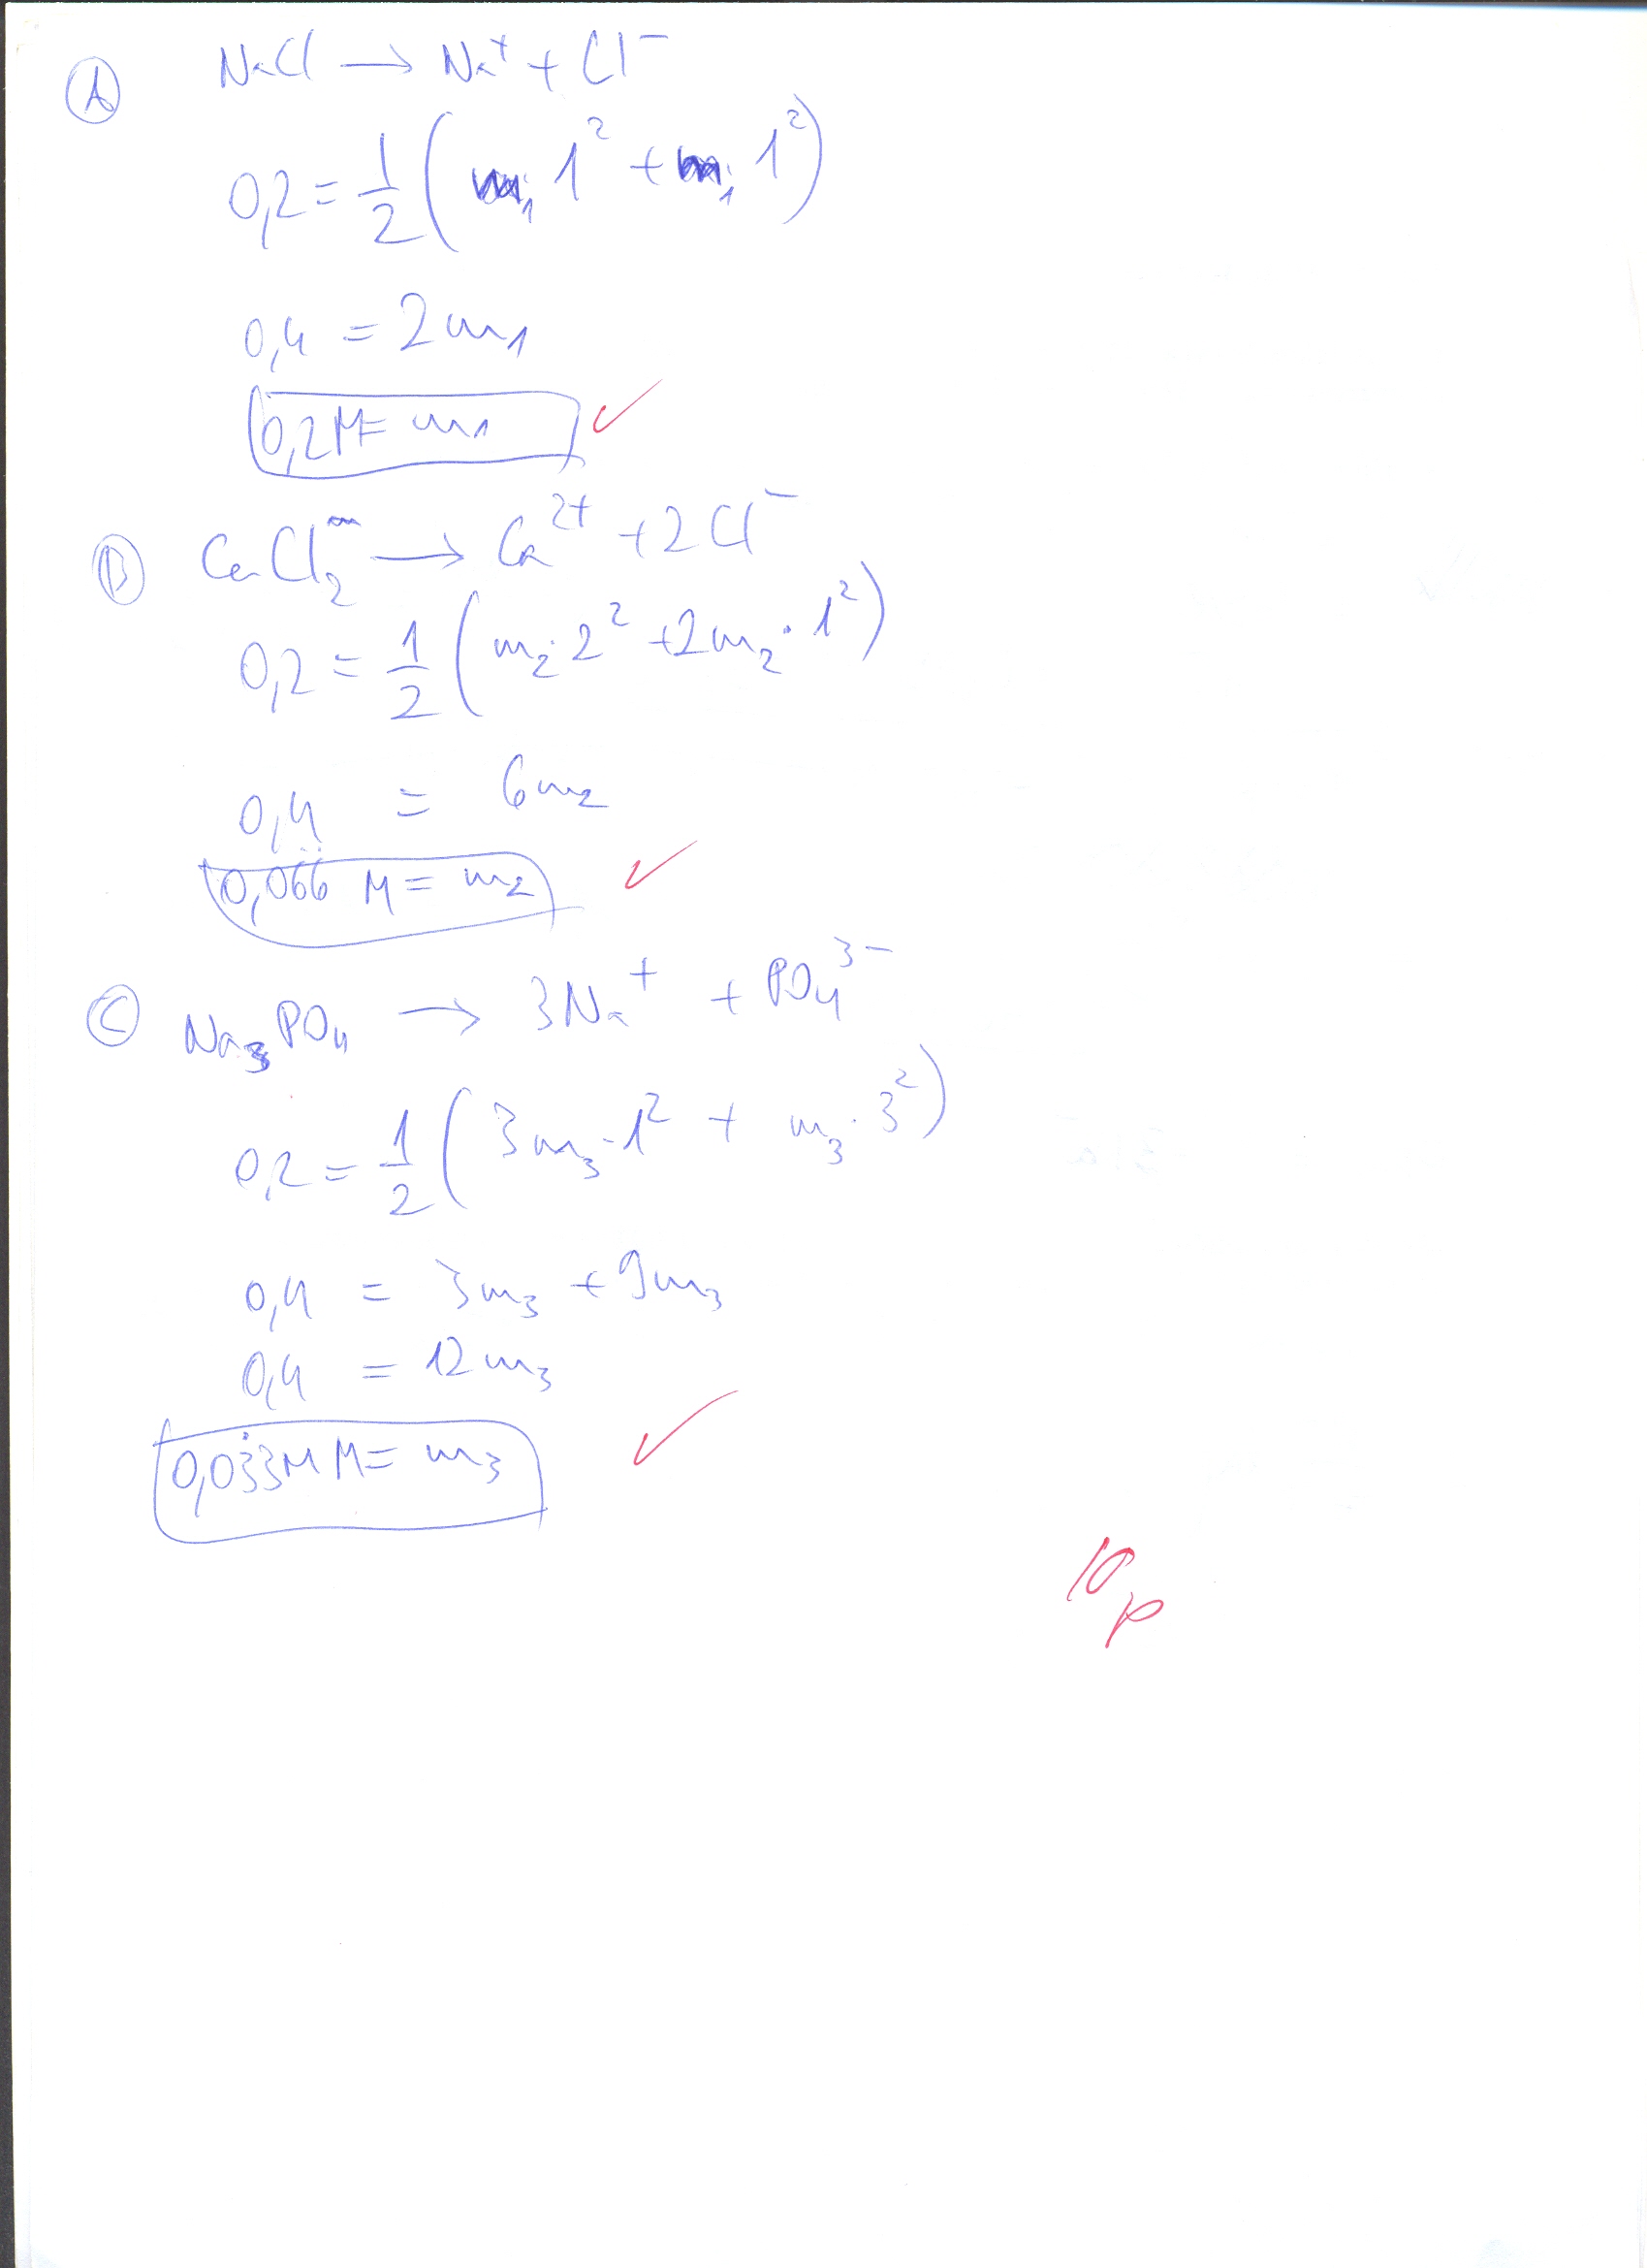 Ⓐ NaCl → Na⁺ + Cl⁻
0,2 = 1/2 (m₁·1² + m₁·1²)
0,4 = 2m₁
0,2M = m₁ ✓
Ⓑ CaCl₂ → Ca²⁺ + 2Cl⁻
0,2 = 1/2 (m₂·2² + 2m₂·1²)
0,4 = 6m₂
0,066 M = m₂ ✓
Ⓒ Na₃PO₄ → 3Na⁺ + PO₄³⁻
0,2 = 1/2 (3m₃·1² + m₃·3²)
0,4 = 3m₃ + 9m₃
0,4 = 12m₃
0,033M M = m₃ ✓
10p